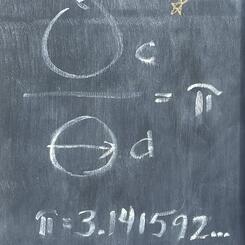 c
= π
d
π = 3.141592...